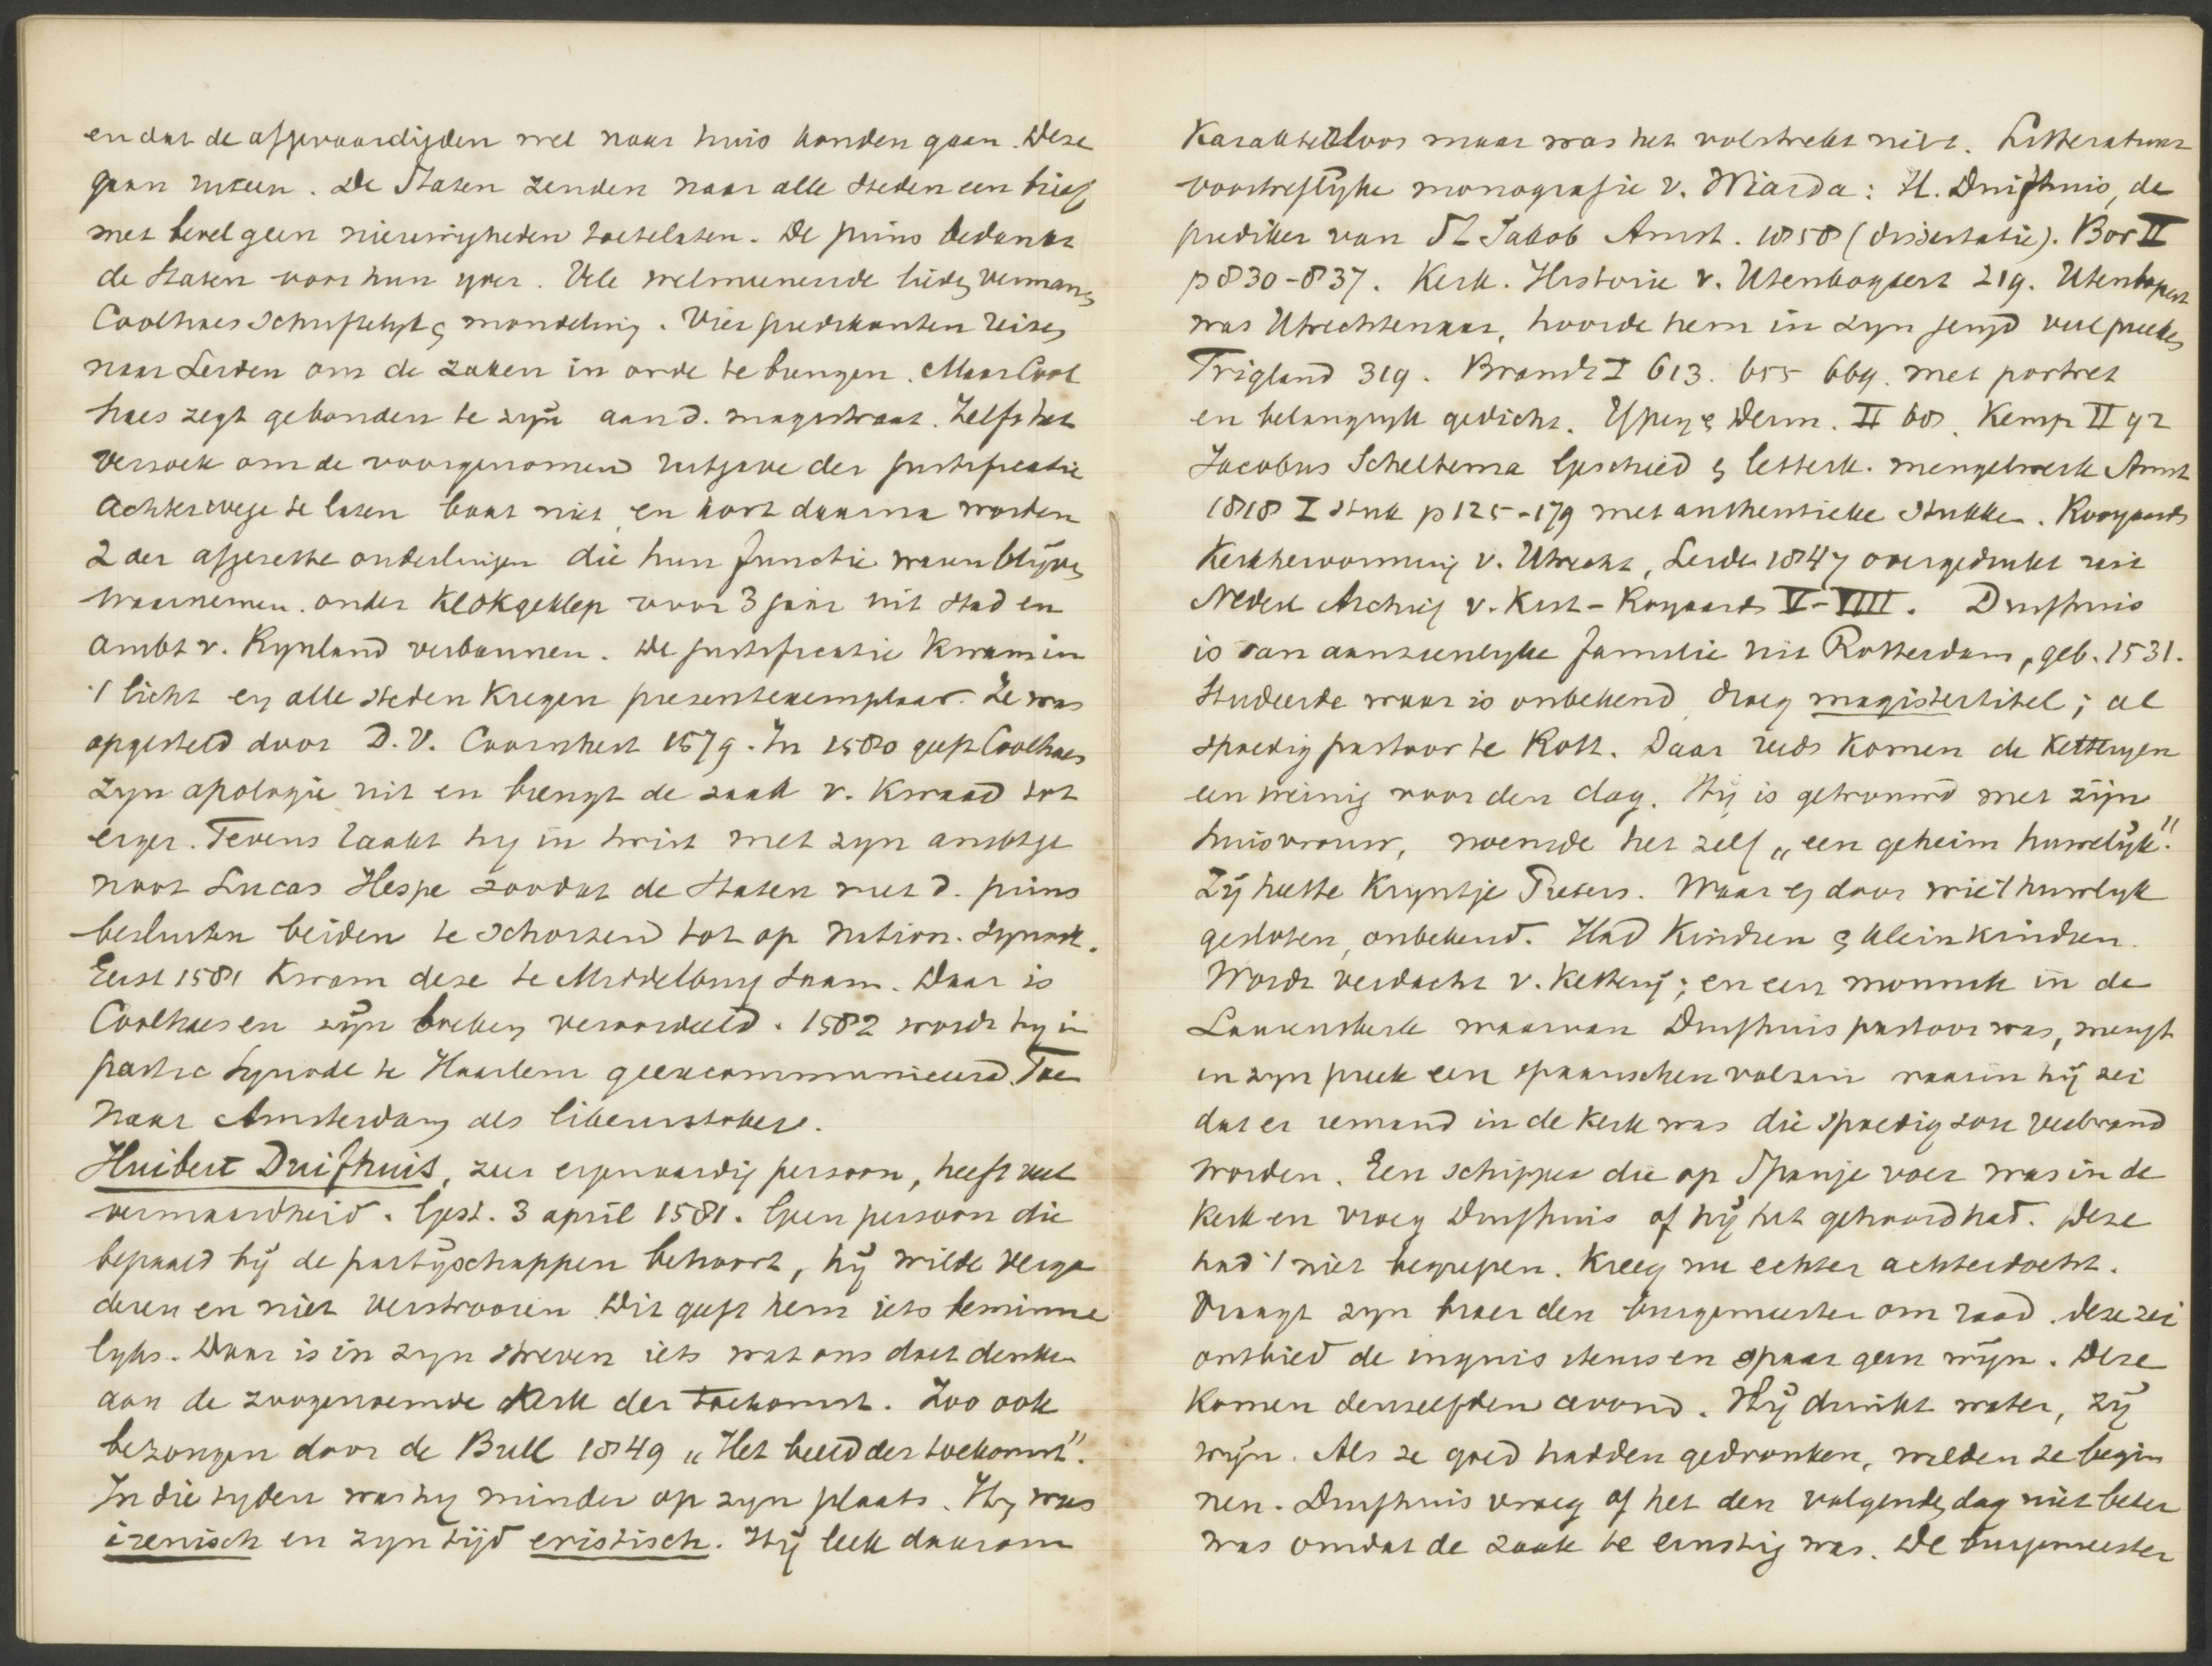 en dat de afgevaardigden wel naar huis konden gaan. Deze
gaan uiteen. De Staten zenden naar alle steden een brief
met bevel geen nieuwigheden toetelaten. De prins bedankt
de Staten voor hun yver. Vele welmeenende lieden vermanen
Coolhaes schriftelyk en mondeling. Vier predikanten reizen
naar Leiden om de zaken in orde te brengen. Maar Cool
haes zegt gebonden te zyn aan d. magistraat. Zelfs het
verzoek om de voorgenomen uitgave der justificatie
achterwege te laten baat niet, en kort daarna worden
2 der afgezette ouderlingen die hun functie waren blijven
waarnemen onder klokgeklep voor 3 jaar uit stad en
ambt v. Rynland verbannen. De justificatie kwam in
't licht en alle steden kregen presentexemplaar. Ze was
opgesteld door D. V. Coornhert 1579. In 1580 geeft Coolhaes
zyn apologie uit en brengt de zaak v. kwaad tot
erger. Tevens raakt hy in twist met zyn ambtge
noot Lucas Hespe zoodat de Staten met d. prins
besluiten beiden te schorsen tot op nation. synode.
Eerst 1581 kwam deze te Middelburg saam. Daar is
Coolhaes en zyn boeken veroordeeld. 1582 wordt hy in
partic synode te Haarlem geexcommuniceerd. Toe
naar Amsterdam als likeurstoker.
Huibert Duifhuis, zeer eigenaardig persoon, heeft veel
vermaardheid. Gest. 3 april 1581. Geen persoon die
bepaald bij de partyschappen behoort, hij wilde verga
deren en niet verstrooien. Dit geeft hem iets beminne
lyks. Daar is in zyn streven iets wat ons doet denken
aan de zoogenoemde Kerk der toekomst. Zoo ook
bezongen door de Bull 1849 „Het beeld der toekomst".
In die tyden was hy minder op zyn plaats. Hy was
irenisch en zyn tijd eristisch. Hij leek daarom
karakterloos maar was het volstrekt niet. Litteratuur
voortreflyke monografie v. Wiarda: H. Duifhuis, de
prediker van St Jakob Amst. 1858 (dissertatie). Bor II
p 830-837. Kerk. Historie v. Utenbogaert 219. Utenbogaert
was Utrechtenaar, hoorde hem in zyn jeugd veel preeken
Trigland 319. Brandt I 613. 655 669. met portret
en belangryk gedicht. Ypey en Derm. II 60. Kemp II 92
Jacobus Scheltema Geschied en letterk. mengelwerk Amst
1818 I stuk p 125-179 met authentieke stukken. Rooyaards
Kerkhervorming v. Utrecht, Leiden 1847 overgedrukt uit
Nederl Archief v. Kist-Royaards V-VIII. Duifhuis
is van aanzienlyke familie uit Rotterdam, geb. 1531.
Studeerde waar is onbekend, droeg magistertitel; al
spoedig pastoor te Rott. Daar reeds komen de ketteryen
een weinig voor den dag. Hij is getrouwd met zijn
huisvrouw, noemde het zelf „een geheim huwelijk."
Zij heette Kryntje Pieters. Waar en door wie 't huwlyk
gesloten, onbekend. Had kinderen en kleinkindren.
Wordt verdacht v. ketterij; en een monnik in de
Laurenskerk waarvan Duifhuis pastoor was, mengt
in zyn preek een spaanschen volzin waarin hij zei
dat er iemand in de kerk was die spoedig zou verbrand
worden. Een schipper die op Spanje voer was in de
kerk en vroeg Duifhuis of hij het gehoord had. Deze
had 't niet begrepen. Kreeg nu echter achterdocht.
Vraagt zyn broer den burgemeester om raad. deze zei
ontbied de inquisiteurs en spaar geen wijn. Deze
komen denzelfden avond. Hij drinkt water, zij
wijn. Als ze goed hadden gedronken, wilden ze begin
nen. Duifhuis vroeg of het den volgenden dag niet beter
was omdat de zaak te ernstig was. De burgemeester